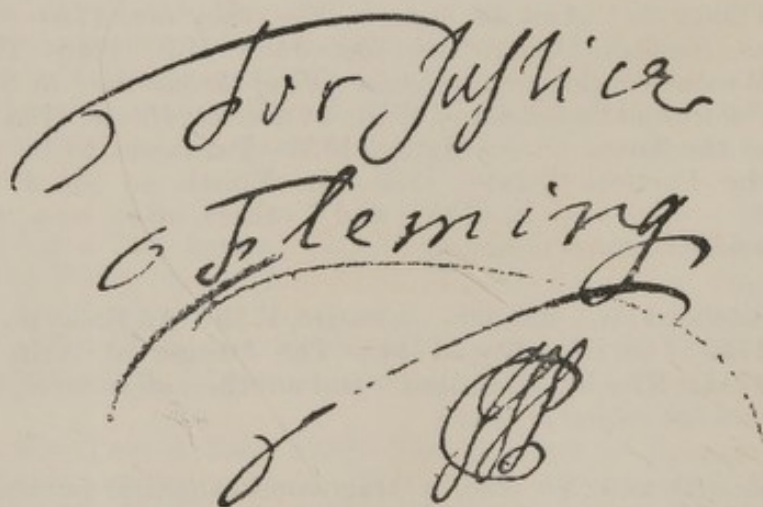 For Justice
Fleming